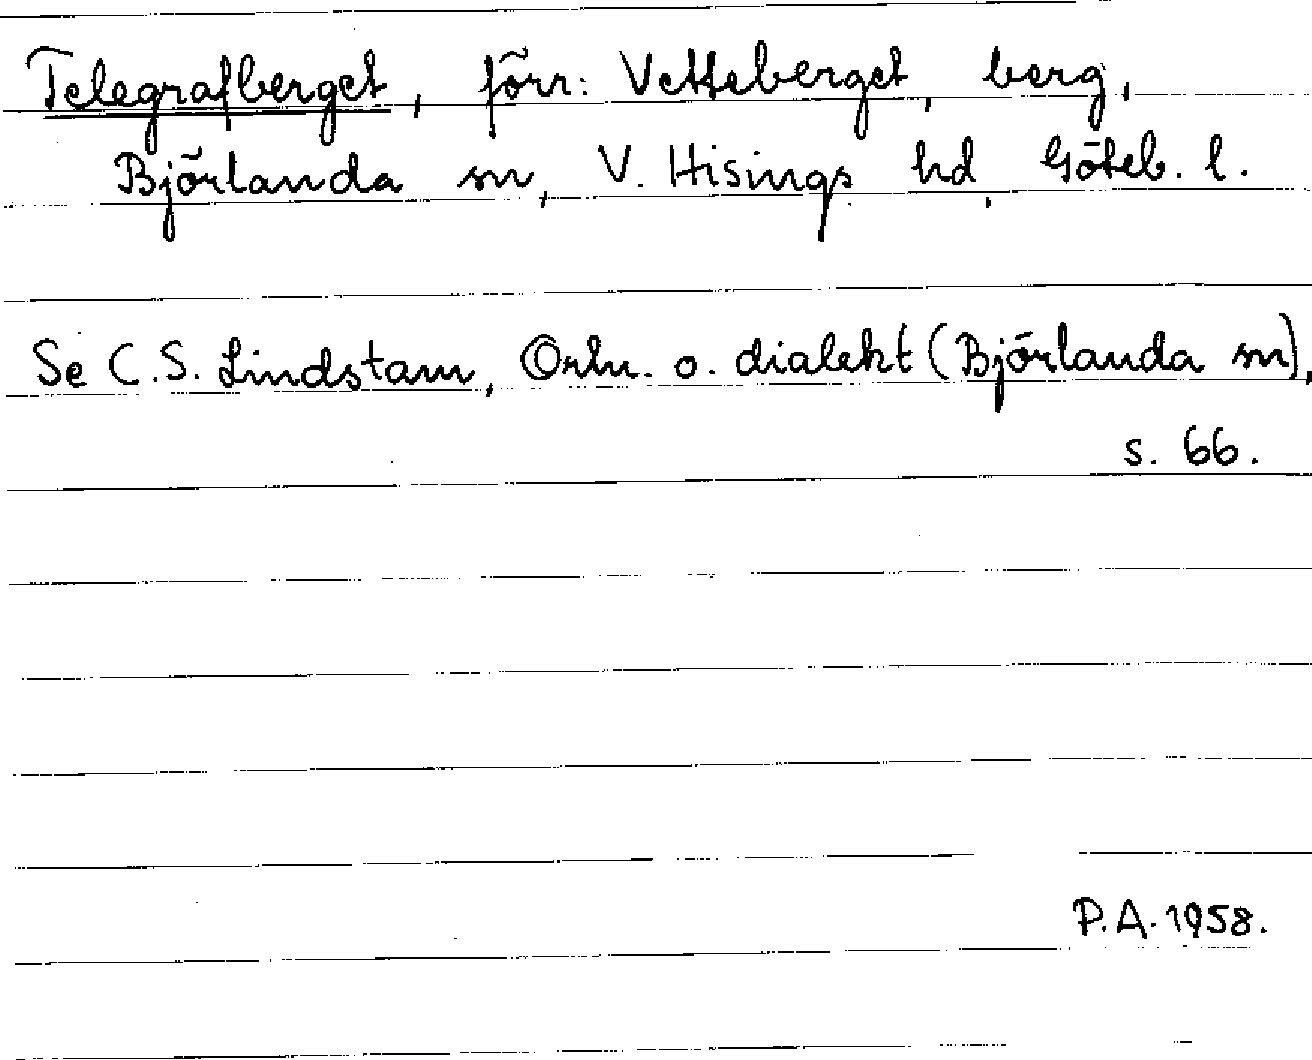 Telegrafberget, förr: Vetteberget, berg,
Björlanda sn, V. Hisings hd, Göteb. l.
Se C.S. Lindstam, Ortn. o. dialekt (Björlanda sn),
s. 66.
P.A. 1958.